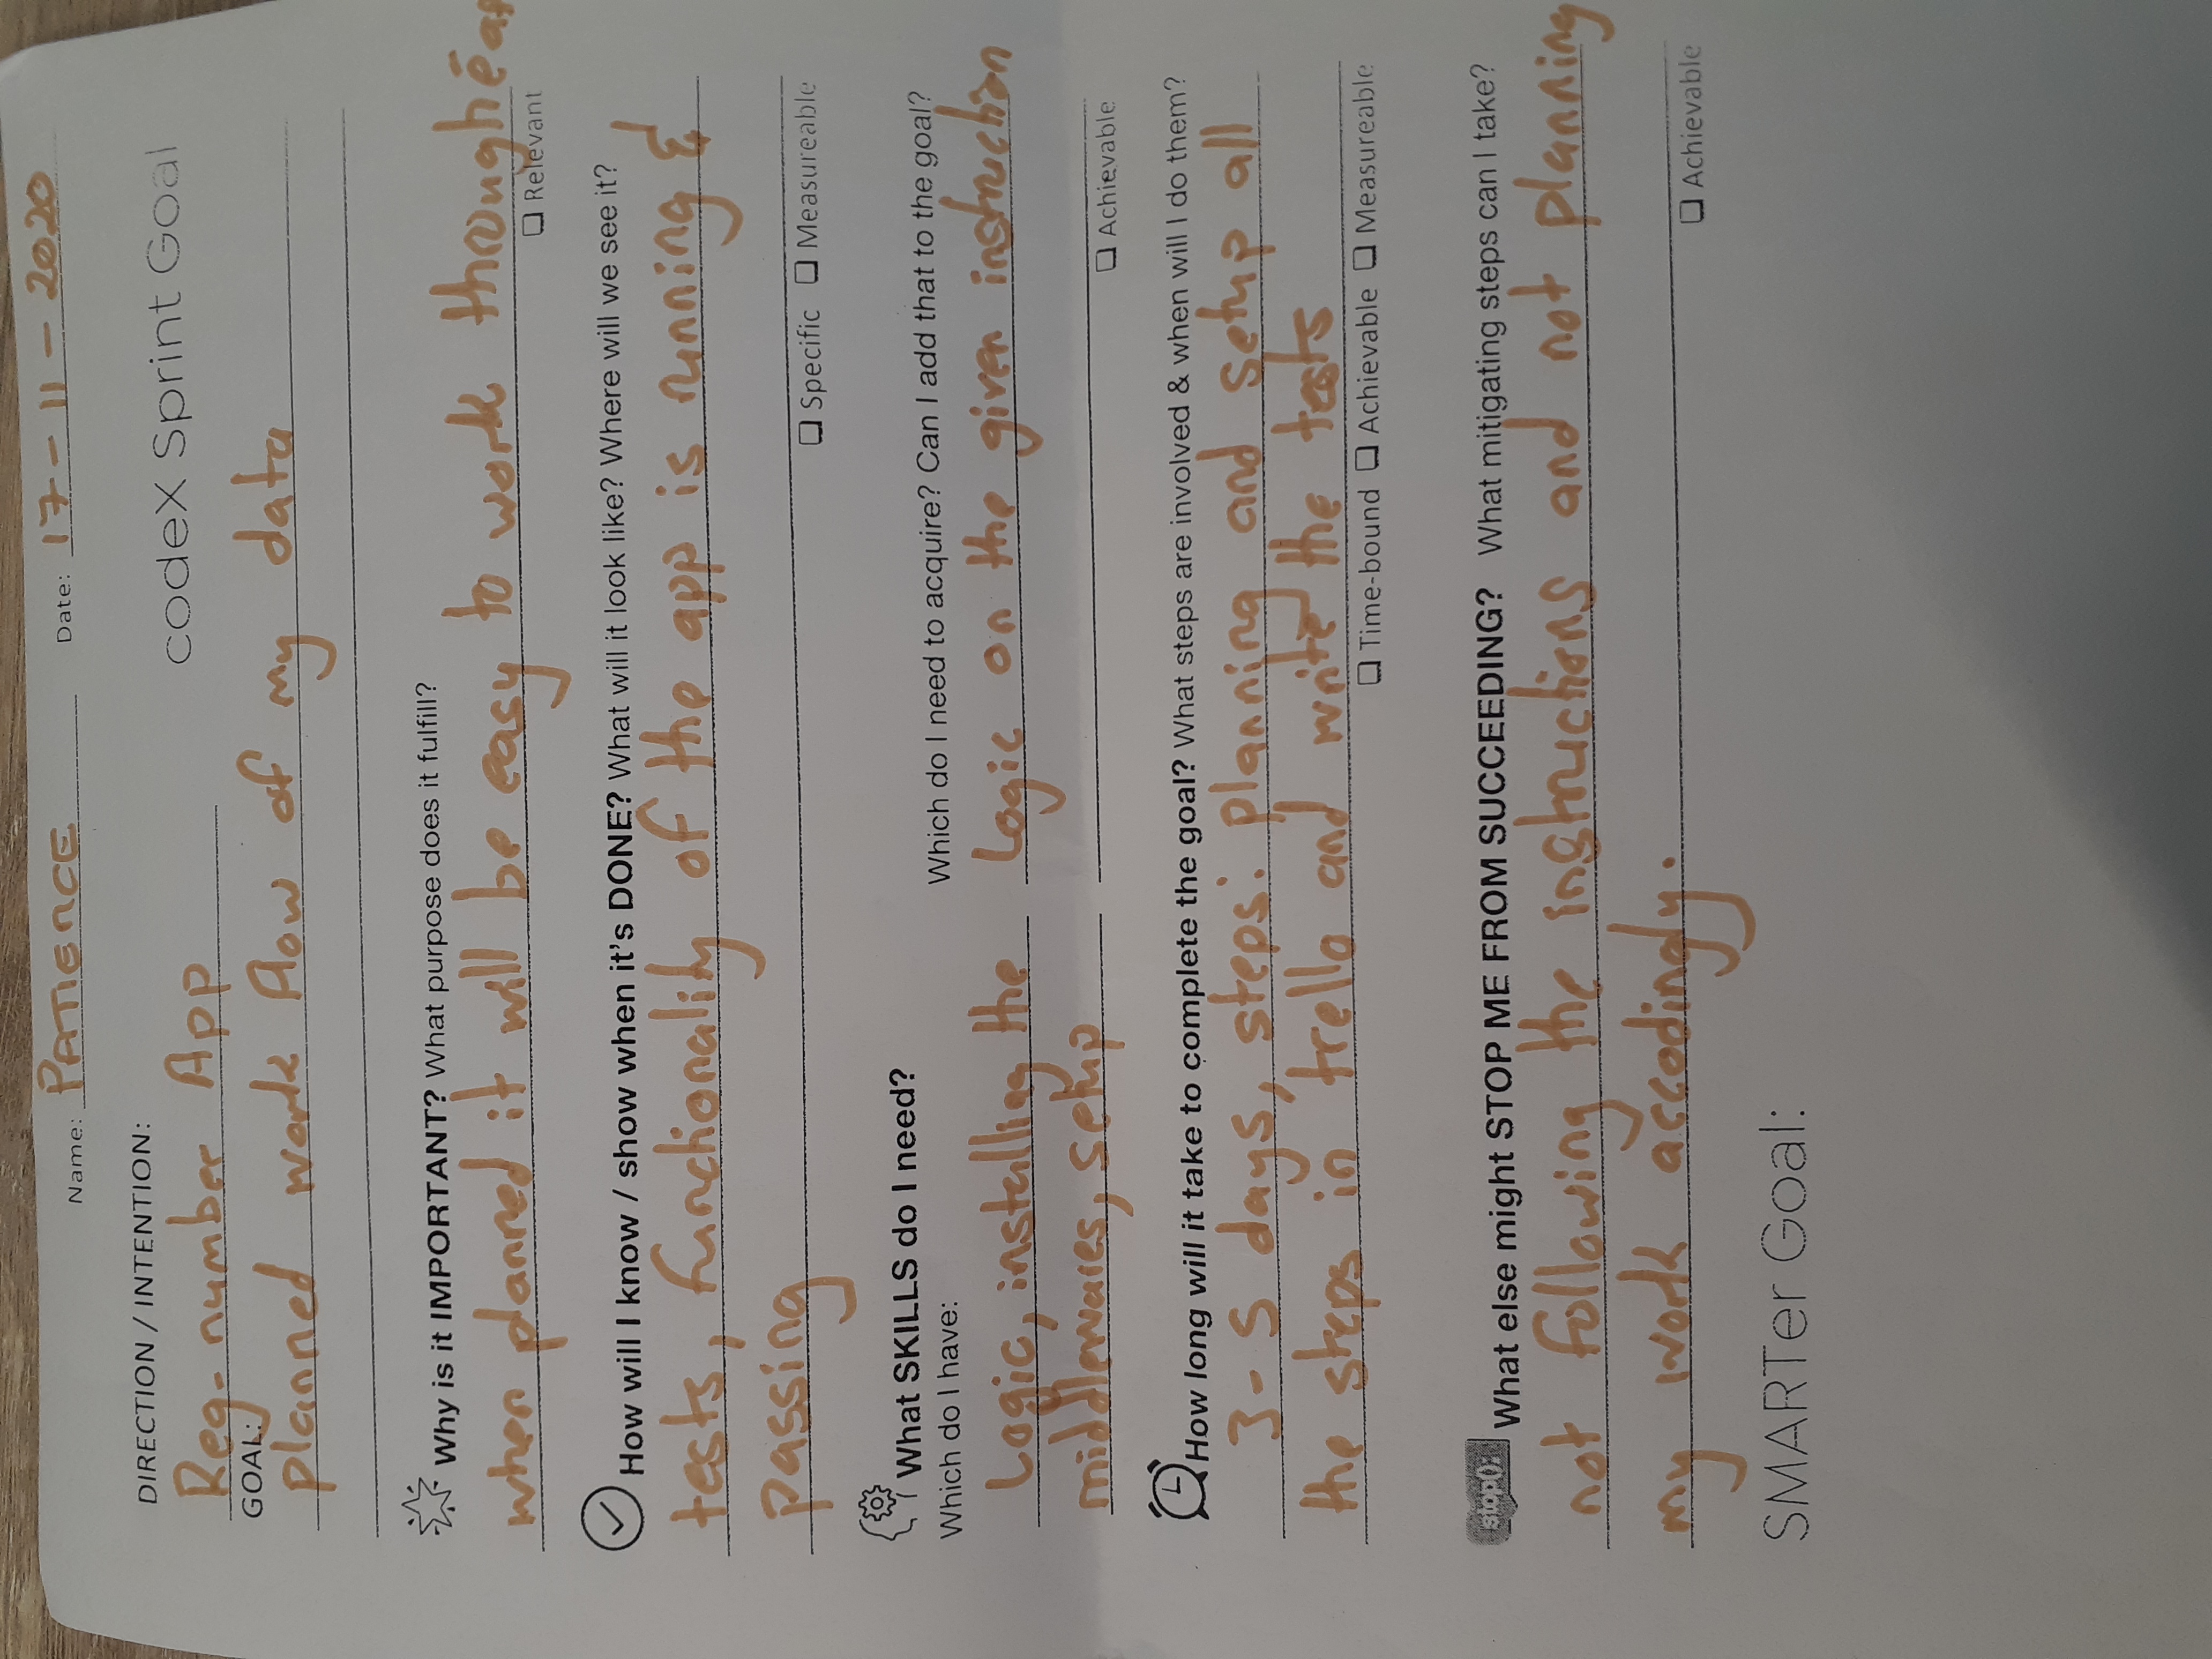 Name: PATIENCE Date: 17-11-2020
DIRECTION / INTENTION:
codeX Sprint Goal
Reg-number App
GOAL:
planned work flow of my data
Why is it IMPORTANT? What purpose does it fulfill?
when planned it will be easy to work through
☐ Relevant
How will I know / show when it's DONE? What will it look like? Where will we see it?
tests, functionality of the app is running &
passing
☐ Specific ☐ Measureable
What SKILLS do I need?
Which do I have:
Logic, installing the
middlewares, setup
Which do I need to acquire? Can I add that to the goal?
Logic on the given instruction
☐ Achievable
How long will it take to complete the goal? What steps are involved & when will I do them?
3-5 days, steps: planning and setup all
the steps in trello and write the tests
☐ Time-bound ☐ Achievable ☐ Measureable
stop();
What else might STOP ME FROM SUCCEEDING? What mitigating steps can I take?
not following the instructions and not planning
my work accodingly.
☐ Achievable
SMARTer Goal: